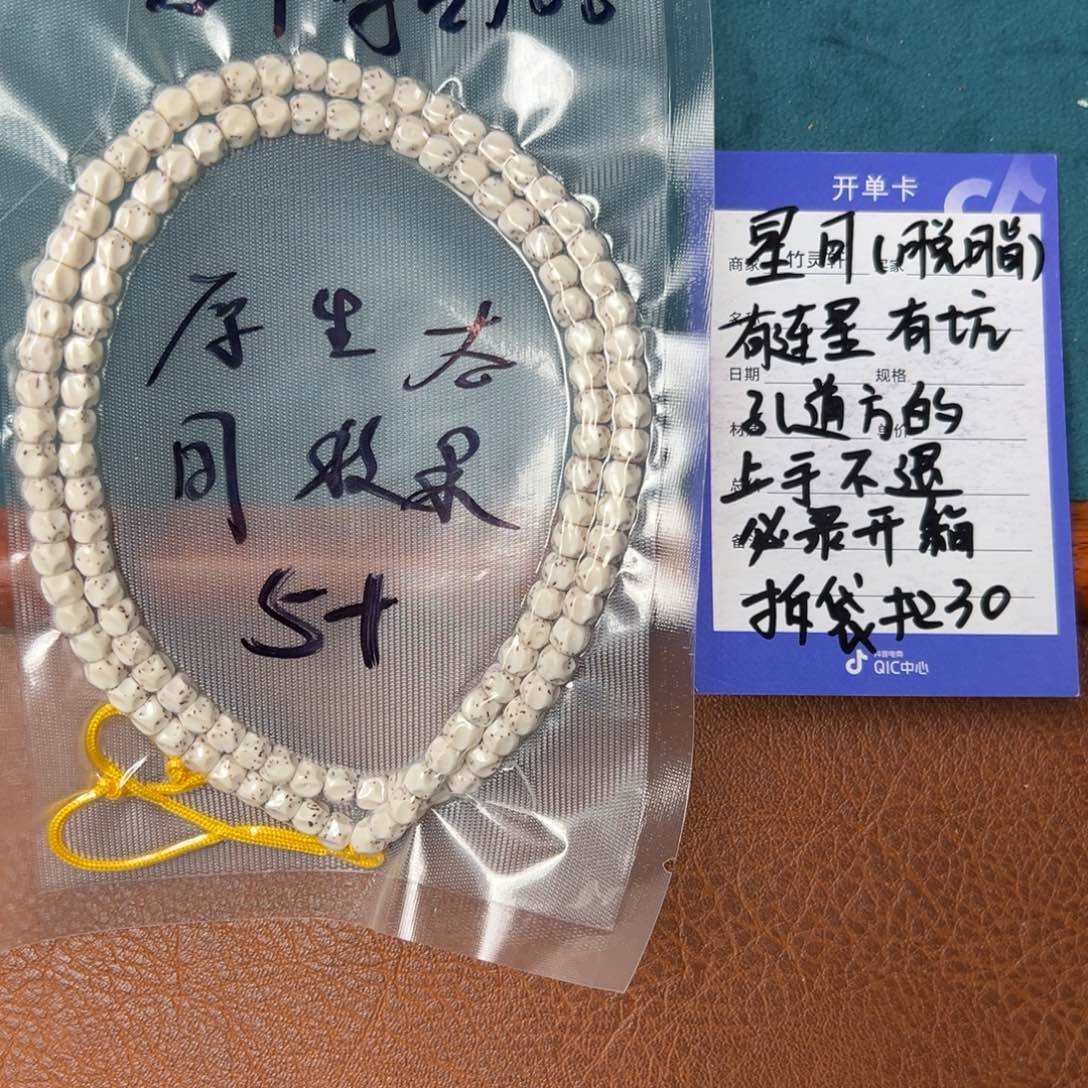 原生态
同效果
5+
开单卡
星月(脱脂)
商家 竹灵轩
有连星 有坑
日期 规格
孔道方的
上手不退
必录开箱
拆袋扣30
抖音电商
QIC中心